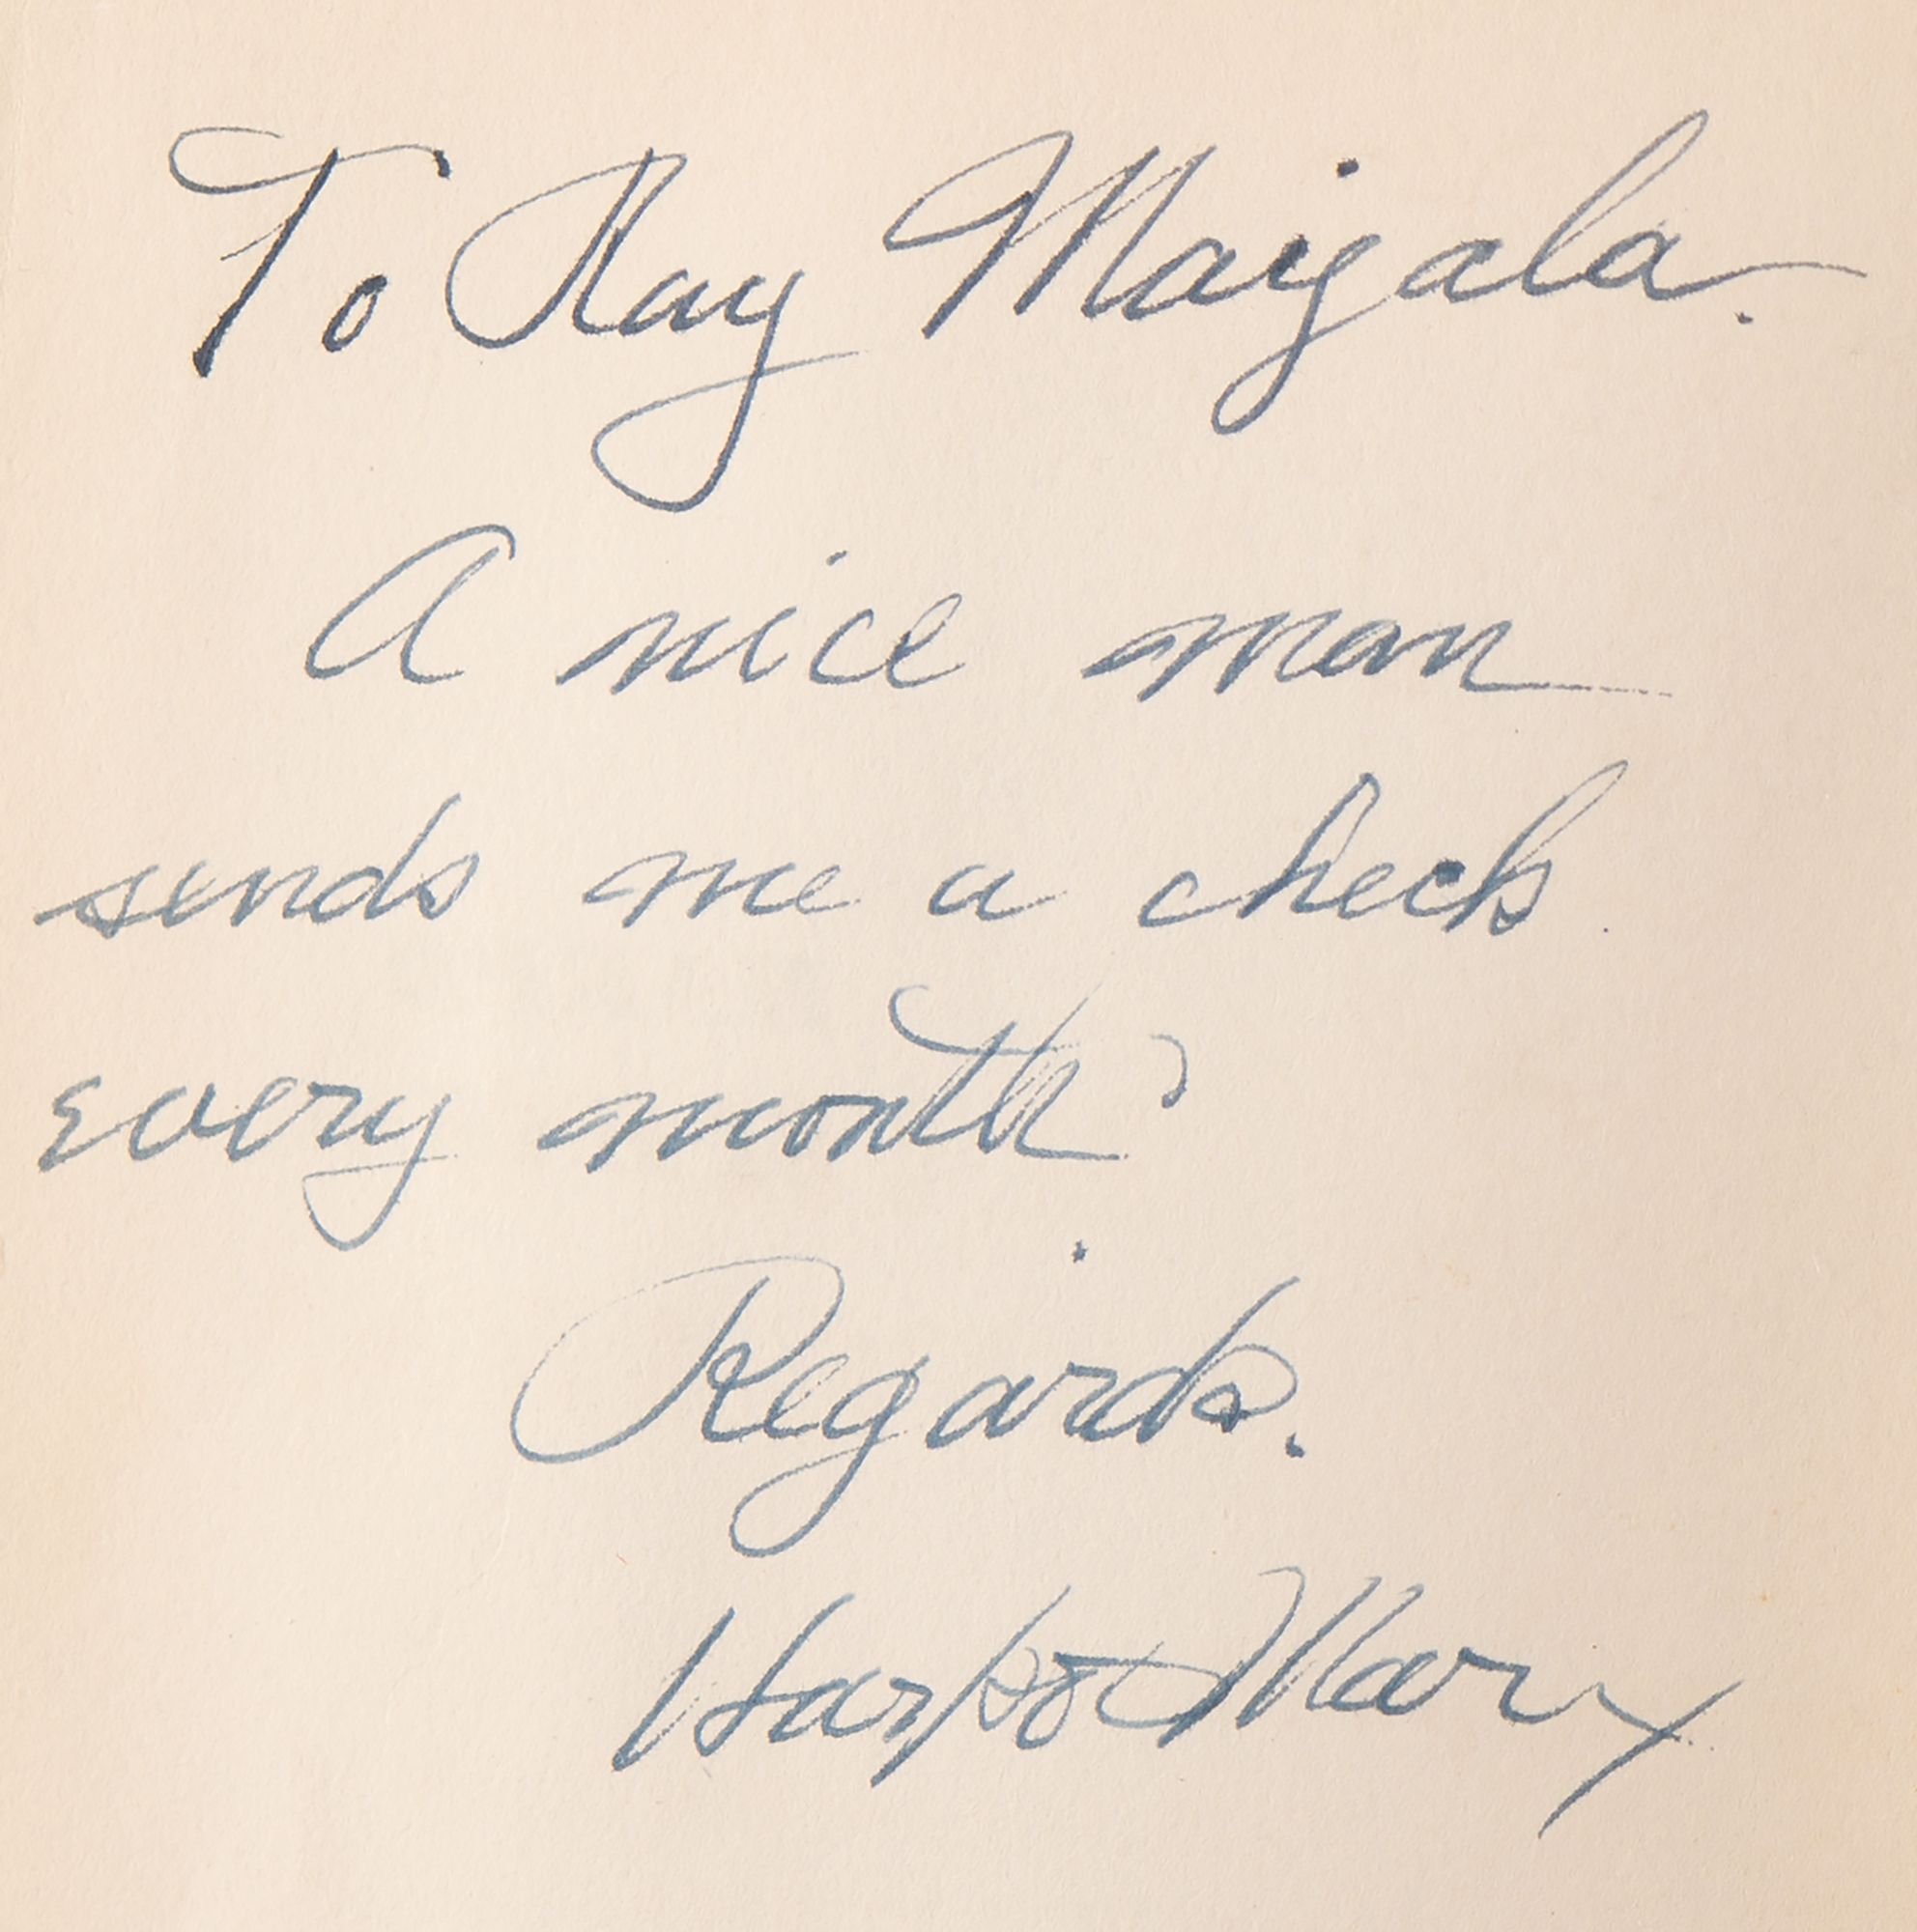 To Ray Maijala.
A nice man
sends me a check
every month?
Regards.
Harpo Marx